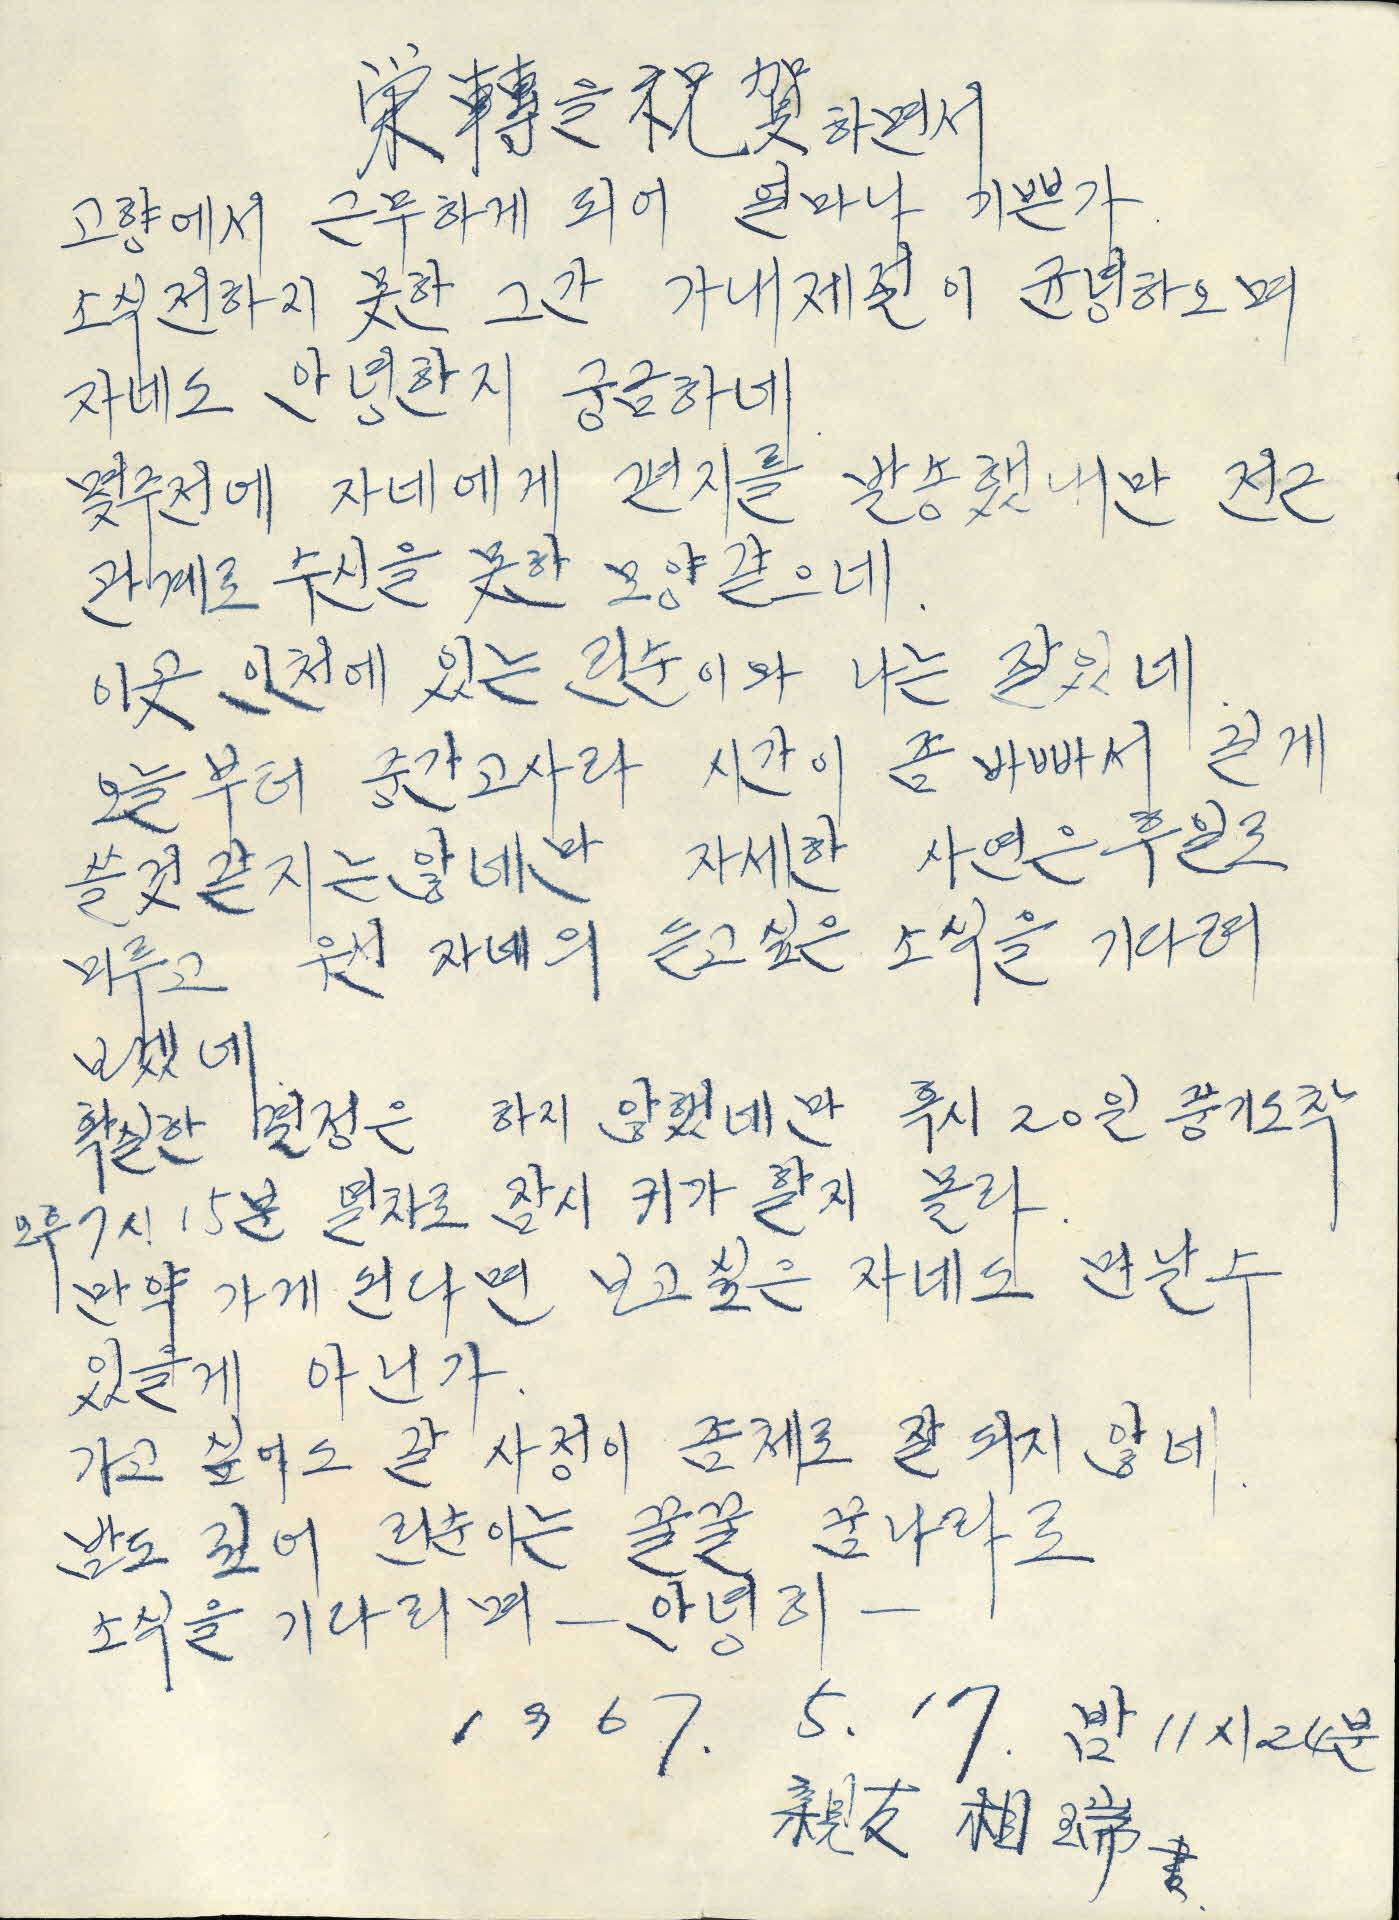 栄轉을 祝賀하면서
고향에서 근무하게 되어 얼마나 기쁜가.
소식전하지 못한 그간 가내제절이 균녕하오며
자네도 안녕한지 궁금하네.
몇주전에 자네에게 편지를 발송했내만 전근
관계로 수신을 못한 모양같으네.
이곳 인천에 있는 린순이와 나는 잘있네.
오늘부터 중간고사라 시간이 좀 바빠서 길게
쓸것같지는않네만 자세한 사연은 후일로
미루고 우선 자네의 듣고싶은 소식을 기다려
보겠네.
확실한 결정은 하지 않했네만 혹시 20일 풍기도착
오후 7시 15분 열차로 잠시 키가 할지 몰라.
만약 가게 된다면 보고싶은 자네도 만날수
있을게 아닌가.
가고 싶어도 갈 사정이 좀체로 잘 되지 않네.
밤도 깊어 린순이는 꿀꿀 꿈나라로
소식을 기다리며 — 안녕히 —
1967. 5. 17. 밤 11시24분
親友 相瑞 書.